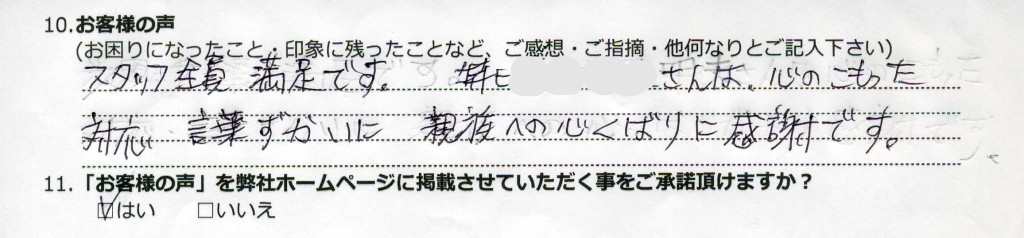 10.お客様の声
(お困りになったこと・印象に残ったことなど、ご感想・ご指摘・他何なりとご記入下さい)
スタッフ全員 満足です。 特に さんは、心のこもった
対応 言葉ずかいに 親族への心くばりに感謝です。
11.「お客様の声」を弊社ホームページに掲載させていただく事をご承諾頂けますか？
☑はい □いいえ